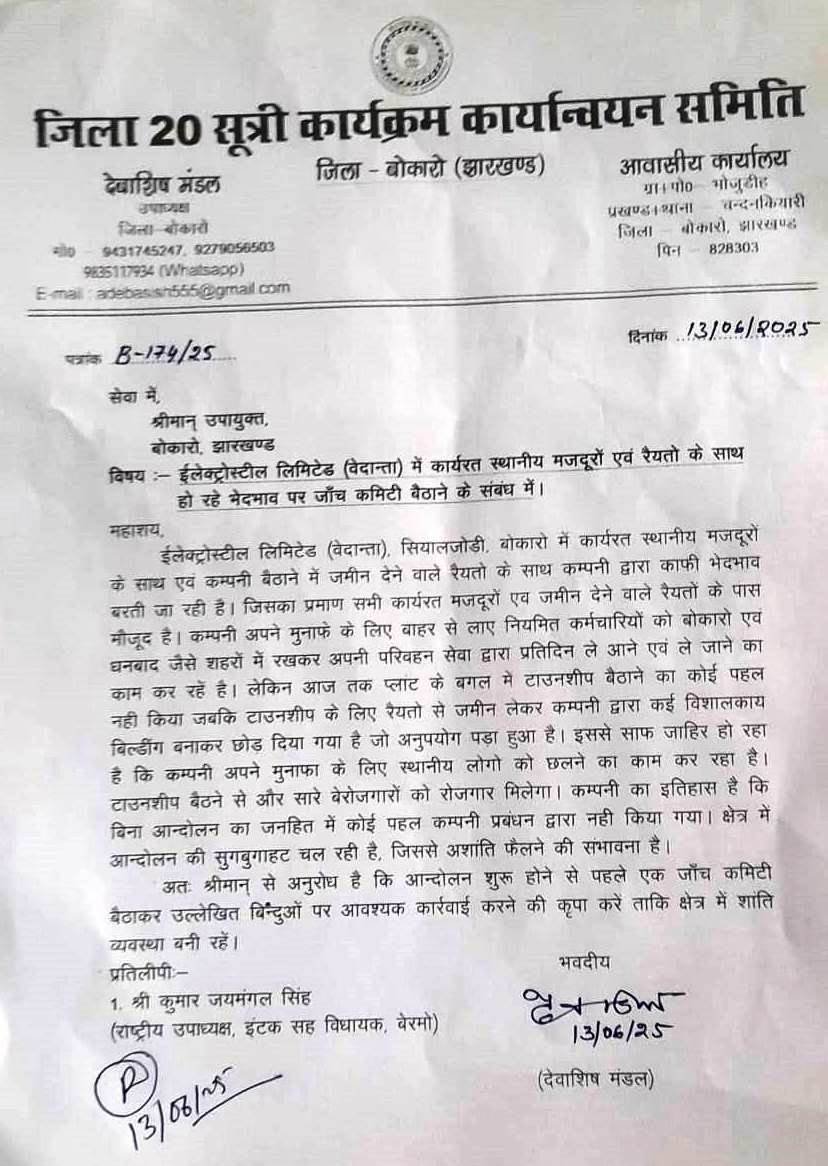 जिला 20 सूत्री कार्यक्रम कार्यान्वयन समिति
जिला - बोकारो (झारखण्ड)
देवाशिष मंडल
उपाध्यक्ष
जिला-बोकारो
मो0 - 9431745247, 9279056503
9835117934 (Whatsapp)
E-mail : adebasish555@gmail.com
आवासीय कार्यालय
ग्रा+पो0 - भोजुडीह
प्रखण्ड+थाना - चन्दनकियारी
जिला - बोकारो, झारखण्ड
पिन - 828303
पत्रांक B-174/25
दिनांक 13/06/2025
सेवा में,
श्रीमान् उपायुक्त,
बोकारो, झारखण्ड
विषय :- ईलेक्ट्रोस्टील लिमिटेड (वेदान्ता) में कार्यरत स्थानीय मजदूरों एवं रैयतो के साथ
हो रहे भेदभाव पर जाँच कमिटी बैठाने के संबंध में।
महाशय,
ईलेक्ट्रोस्टील लिमिटेड (वेदान्ता), सियालजोडी, बोकारो में कार्यरत स्थानीय मजदूरों
के साथ एवं कम्पनी बैठाने में जमीन देने वाले रैयतो के साथ कम्पनी द्वारा काफी भेदभाव
बरती जा रही है। जिसका प्रमाण सभी कार्यरत मजदूरों एव जमीन देने वाले रैयतों के पास
मौजूद है। कम्पनी अपने मुनाफे के लिए बाहर से लाए नियमित कर्मचारियों को बोकारो एवं
धनबाद जैसे शहरों में रखकर अपनी परिवहन सेवा द्वारा प्रतिदिन ले आने एवं ले जाने का
काम कर रहें है। लेकिन आज तक प्लांट के बगल मे टाउनशीप बैठाने का कोई पहल
नही किया जबकि टाउनशीप के लिए रैयतो से जमीन लेकर कम्पनी द्वारा कई विशालकाय
बिल्डींग बनाकर छोड़ दिया गया है जो अनुपयोग पड़ा हुआ है। इससे साफ जाहिर हो रहा
है कि कम्पनी अपने मुनाफा के लिए स्थानीय लोगो को छलने का काम कर रहा है।
टाउनशीप बैठने से और सारे बेरोजगारों को रोजगार मिलेगा। कम्पनी का इतिहास है कि
बिना आन्दोलन का जनहित में कोई पहल कम्पनी प्रबंधन द्वारा नही किया गया। क्षेत्र में
आन्दोलन की सुगबुगाहट चल रही है, जिससे अशांति फैलने की संभावना है।
अतः श्रीमान् से अनुरोध है कि आन्दोलन शुरू होने से पहले एक जाँच कमिटी
बैठाकर उल्लेखित बिन्दुओं पर आवश्यक कार्रवाई करने की कृपा करें ताकि क्षेत्र में शांति
व्यवस्था बनी रहें।
प्रतिलीपी:-
1. श्री कुमार जयमंगल सिंह
(राष्ट्रीय उपाध्यक्ष, इंटक सह विधायक, बेरमो)
भवदीय
13/06/25
(देवाशिष मंडल)
R
13/06/25